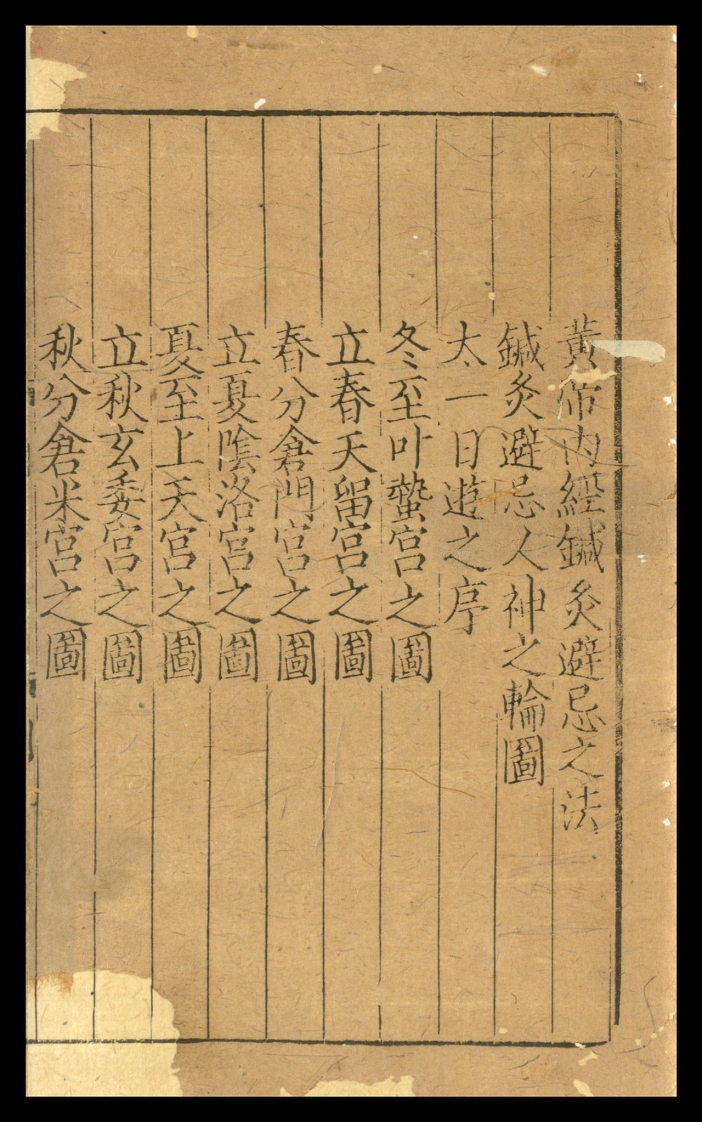 黃帝内經鍼灸避忌之法
鍼灸避忌人神之輪圖
太一日遊之序
冬至叶蟄宮之圖
立春天留宮之圖
春分倉門宮之圖
立夏陰洛宮之圖
夏至上天宮之圖
立秋玄委宮之圖
秋分倉米宮之圖